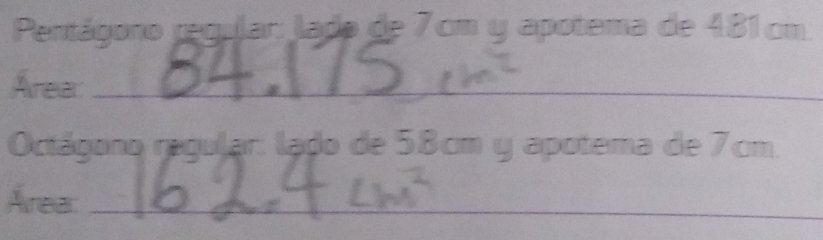 Pentágono regular: lado de 7 cm y apotema de 4.81 cm.
Área: 84.175 cm²
Octágono regular: lado de 5.8 cm y apotema de 7 cm.
Área: 162.4 cm²